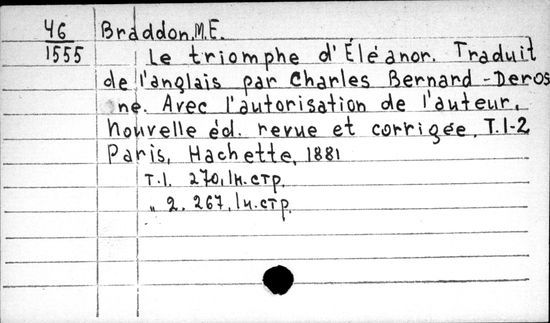 46 Braddon, M.E.
1555 Le triomphe d'Éléanor. Traduit
de l'anglais par Charles Bernard-Deros
ne. Avec l'autorisation de l'auteur.
Nouvelle éd. revue et corrigée. T.1-2
Paris, Hachette, 1881
Т.1. 270, 1н.стр.
„ 2. 267, 1н.стр.